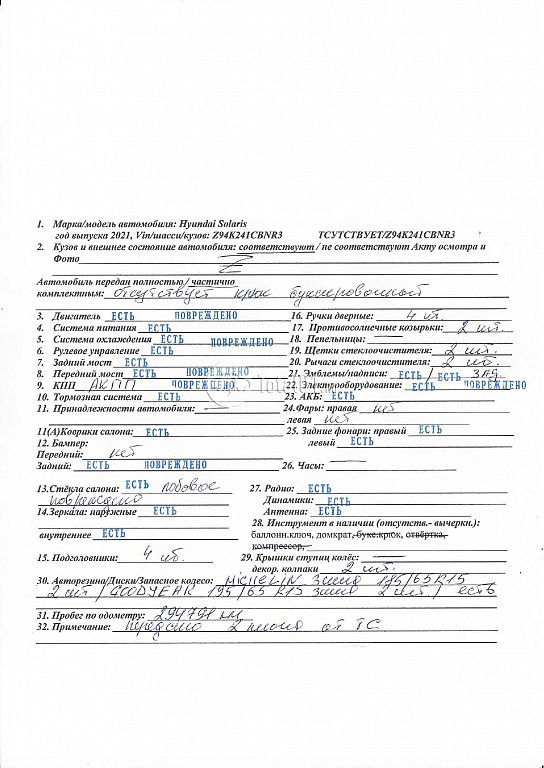 1. Марка/модель автомобиля: Hyundai Solaris
год выпуска 2021, Vin/шасси/кузов: Z94K241CBNR3 ТСУТСТВУЕТ/Z94K241CBNR3
2. Кузов и внешнее состояние автомобиля: соответствуют / не соответствуют Акту осмотра и
Фото Z
Автомобиль передан полностью / частично
комплектным: отсутствует крюк буксировочный
3. Двигатель ЕСТЬ ПОВРЕЖДЕНО 16. Ручки дверные: 4 шт.
4. Система питания ЕСТЬ 17. Противосолнечные козырьки: 2 шт.
5. Система охлаждения ЕСТЬ ПОВРЕЖДЕНО 18. Пепельницы:
6. Рулевое управление ЕСТЬ 19. Щетки стеклоочистителя: 2 шт.
7. Задний мост ЕСТЬ 20. Рычаги стеклоочистителя: 2 шт.
8. Передний мост ЕСТЬ ПОВРЕЖДЕНО 21. Эмблемы/надписи: ЕСТЬ / ЕСТЬ ЗАД.
9. КПП АКПП ПОВРЕЖДЕНО 22. Электрооборудование: ЕСТЬ ПОВРЕЖДЕНО
10. Тормозная система ЕСТЬ 23. АКБ: ЕСТЬ
11. Принадлежности автомобиля: 24. Фары: правая нет
левая нет
11(А)Коврики салона: ЕСТЬ 25. Задние фонари: правый ЕСТЬ
12. Бампер: левый ЕСТЬ
Передний: нет
Задний: ЕСТЬ ПОВРЕЖДЕНО 26. Часы:
13.Стёкла салона: ЕСТЬ лобовое 27. Радио: ЕСТЬ
повреждено Динамики: ЕСТЬ
14.Зеркала: наружные ЕСТЬ Антенна: ЕСТЬ
28. Инструмент в наличии (отсутств.- вычеркн.):
внутреннее ЕСТЬ баллонн.ключ, домкрат, букс.крюк, отвёртка,
компрессор,
15. Подголовники: 4 шт. 29. Крышки ступиц колёс:
декор. колпаки 2 шт.
30. Авторезина/Диски/Запасное колесо: MICHELIN зима 185/65 R15
2 шт / GOODYEAR 195/65 R15 зима 2 шт. / есть
31. Пробег по одометру: 294791 км
32. Примечание: передано 2 ключа от ТС